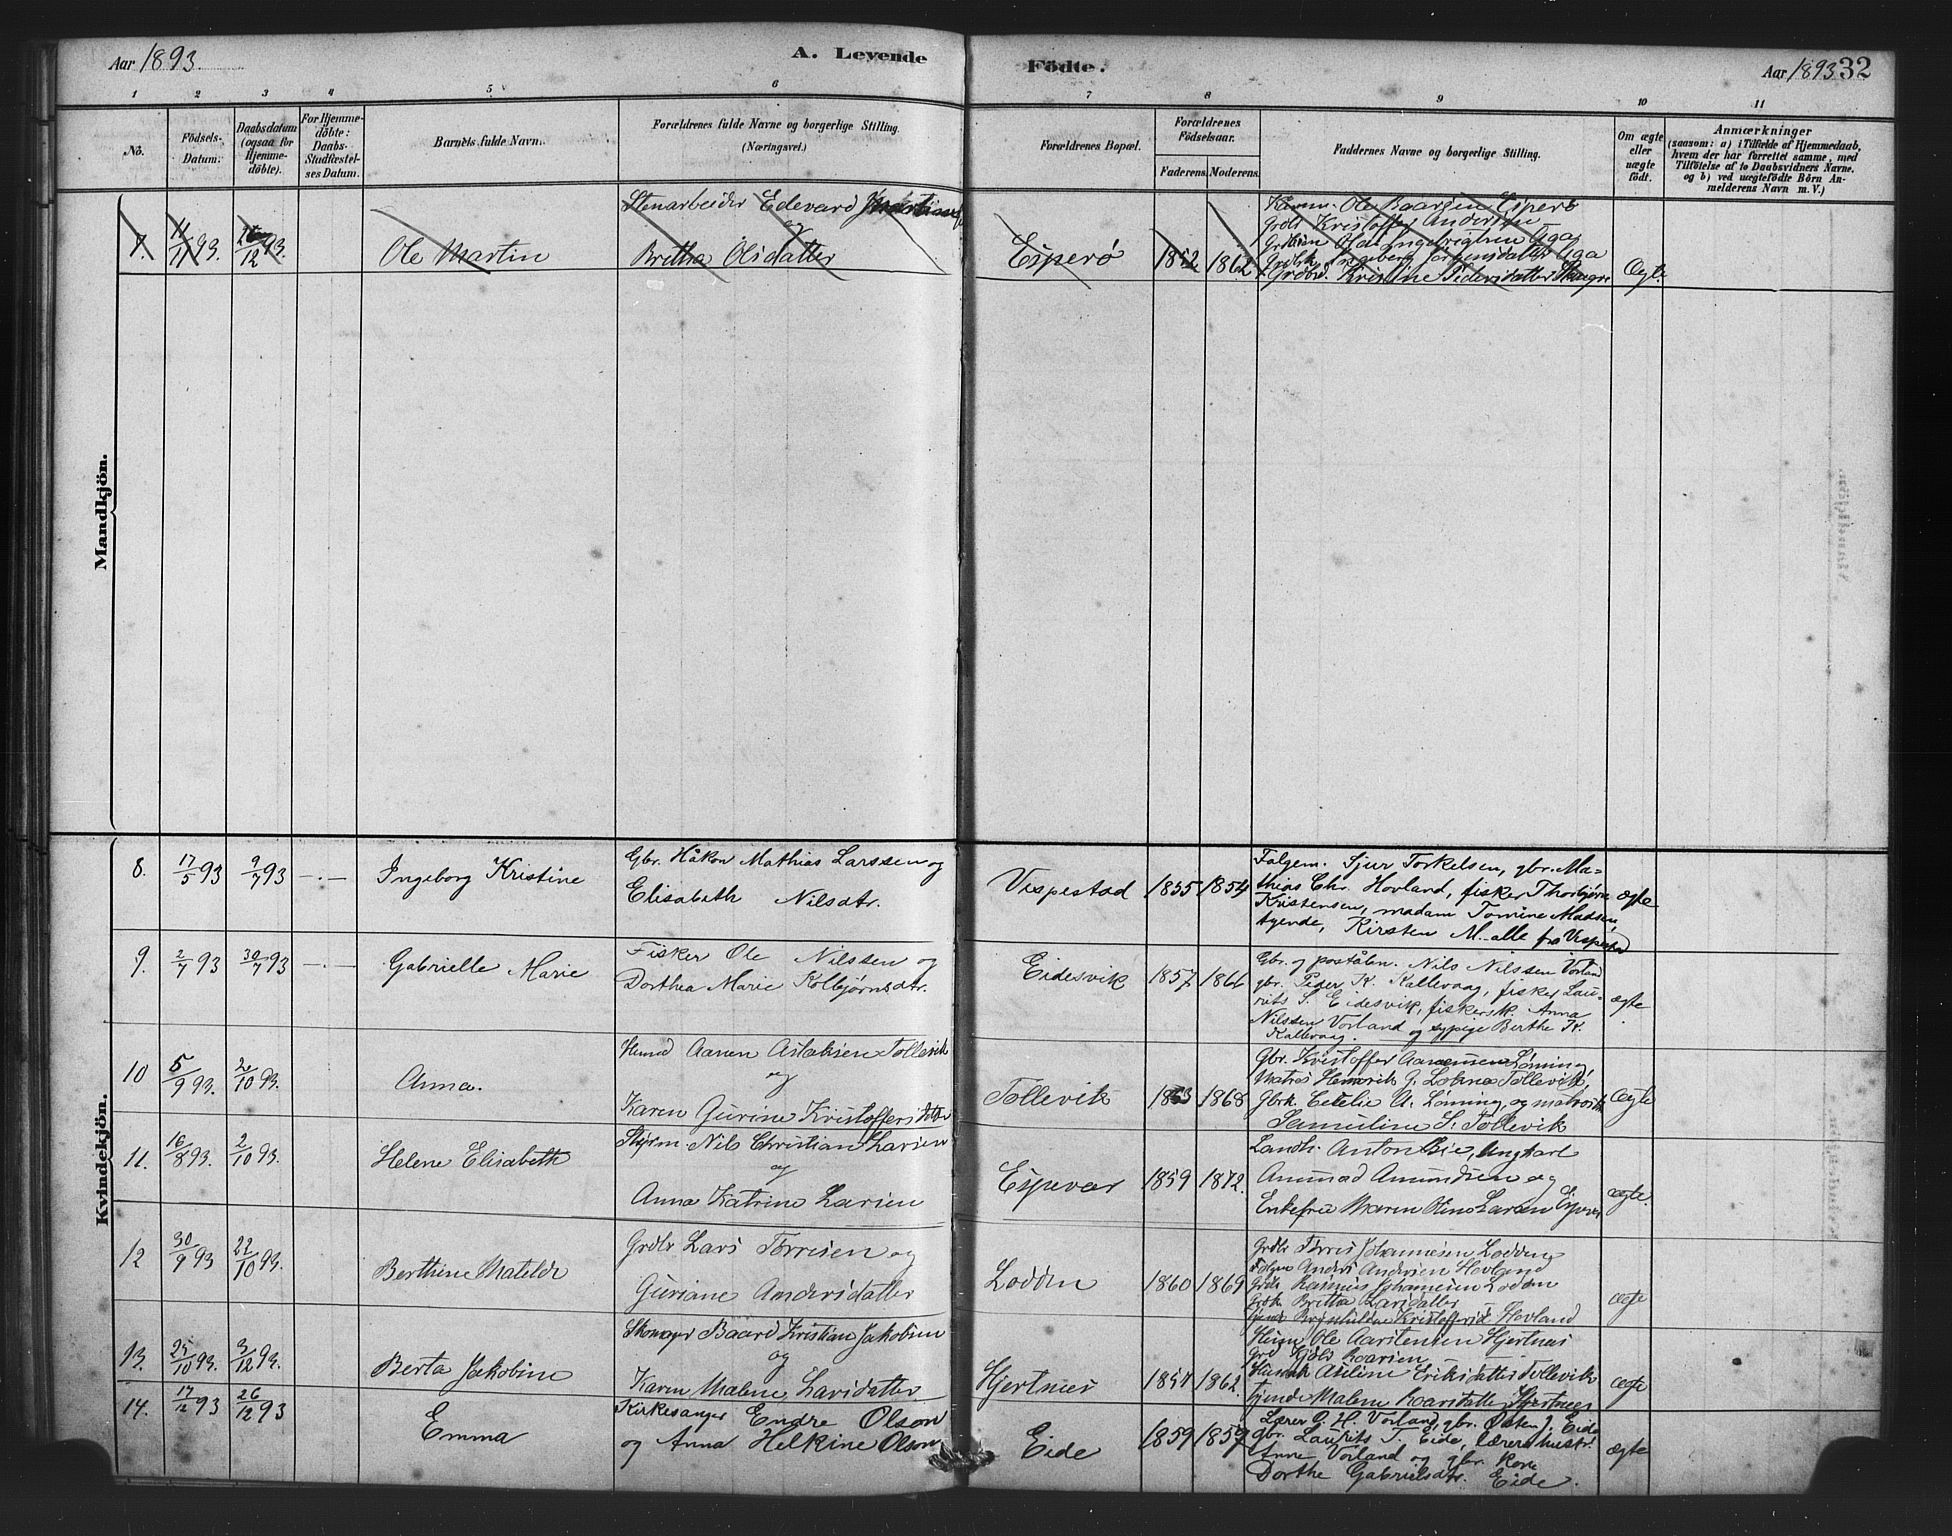 Aar 1893. A. Levende Födte. Aar 1893 32
1 2 3 4 5 6 7 8 9 10 11
No.
Födsels-Datum.
Daabsdatum (ogsaa for Hjemme-döbte).
For Hjemme-döbte: Daabs-Stadfæstel-ses Datum.
Barnets fulde Navn.
Forældrenes fulde Navne og borgerlige Stilling. (Næringsvei.)
Forældrenes Bopæl.
Forældrenes Födselsaar.
Faderens. Moderens.
Faddernes Navne og borgerlige Stilling.
Om ægte eller uægte födt.
Anmærkninger
(saasom: a) i Tilfælde af Hjemmedaab, hvem der har forrettet samme, med Tilföielse af to Daabsvidners Navne, og b) ved uægtefödte Börn An-melderens Navn m. V.)
Mandkjön.
7. 11/11 93. 26/12 93. Ole Martin
Stenarbeider Edevard
og
Britha Olsdatter
Esperø 1852 1862
Ole Baardsen Esperø
Grdbr Kristoffer Andersen
Kristine Pedersdatter
Ægte.
Kvindekjön.
8. 17/5 93 9/7 93 —.— Ingeborg Kristine
Gbr. Håkon Mathias Larssen og
Elisabeth Nilsdtr.
Vespestad 1855 1854
Falgem. Sjur Torkelsen, gbr. Ma-
thias Chr. Hovland, fisker Thorbjørn
Kristensen, madam Tomine Madsen,
tyende, Kirsten M. alle fra Vespestad
ægte
9. 2/7 93 30/7 93 —.— Gabrielle Marie
Fisker Ole Nilssen og
Dorthea Marie Kolbjørnsdtr.
Eidesvik 1857 1866
Gbr. og poståbn. Nils Nilssen Vorland
gbr. Peder K. Kallevaag, fisker Lau-
rits S. Eidesvik, fiskersk. Anna
Nilssen Vorland og sypige Berthe K.
Kallevaag.
ægte
10 5/9 93. 2/10 93. Anna.
Husmd Aanen Aslaksen Tollevik
og
Karen Gurine Kristoffersdatter
Tollevik 1863 1868
Gbr. Kristoffer Aanensen Lønning,
Matros Henrik G. Tollevik,
Gbrk. Cecelie A. Lønning, og matrosk.
Samuline S. Tollevik
Ægte
11. 16/8 93. 2/10 93. Helene Elisabeth
Styrm. Nils Christian Larsen
og
Anna Katrine Larsen
Espevær 1859 1872.
Landh. Anton Bie, Ungkarl
Amund Amundsen og
Enkefru Maren Larsen Espevær
ægte
12 30/9 93 22/10 93. Berthine Matilde
Grdbr Lars Torrisen og
Guriane Andersdatter
Lodden 1860 1869
Grdbr Torris Johannesen Lodden
Anders Andersen Hovland
Grdbr Rasmus Johannesen Lodden
Britha Larsdatter
Kristoffersd. Hovland
ægte
13. 25/10 93. 3/12 93. Berta Jakobine
Skomager Baard Kristian Jakobsen
og
Karen Malene Larsdatter
Hjertnes 1857 1862.
Husm Ole Aarstensen Hjertnes
Aslline Eriksdatter Tollevik
Malene Hjertnes
ægte
14. 17/12 93 26/12 93 Emma
Kirkesanger Endre Olson
og Anna Helkine Olson
Eide 1859 1859
Lærer O. H. Vorland, gbr. Østen J. Eide
gbr. Laurits T. Eide, lærerhustr.
Anne Vorland og gbr. kone
Dorthe Gabrielsdtr. Eide.
ægte